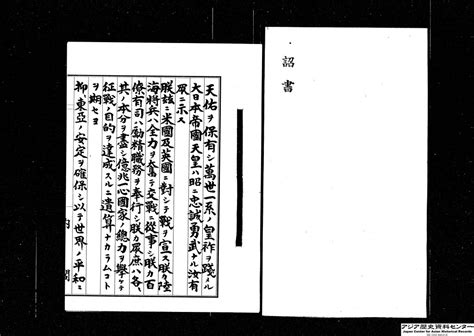 詔書
天佑ヲ保有シ萬世一系ノ皇祚ヲ踐メル
大日本帝國天皇ハ昭ニ忠誠勇武ナル汝有
眾ニ示ス
朕茲ニ米國及英國ニ對シテ戰ヲ宣ス朕カ陸
海將兵ハ全力ヲ奮テ交戰ニ從事シ朕カ百
僚有司ハ勵精職務ヲ奉行シ朕カ眾庶ハ各〻
其ノ本分ヲ盡シ億兆一心國家ノ總力ヲ擧ケテ
征戰ノ目的ヲ達成スルニ遺算ナカラムコト
ヲ期セヨ
抑〻東亞ノ安定ヲ確保シ以テ世界ノ平和ニ
内閣
アジア歴史資料センター
Japan Center for Asian Historical Records